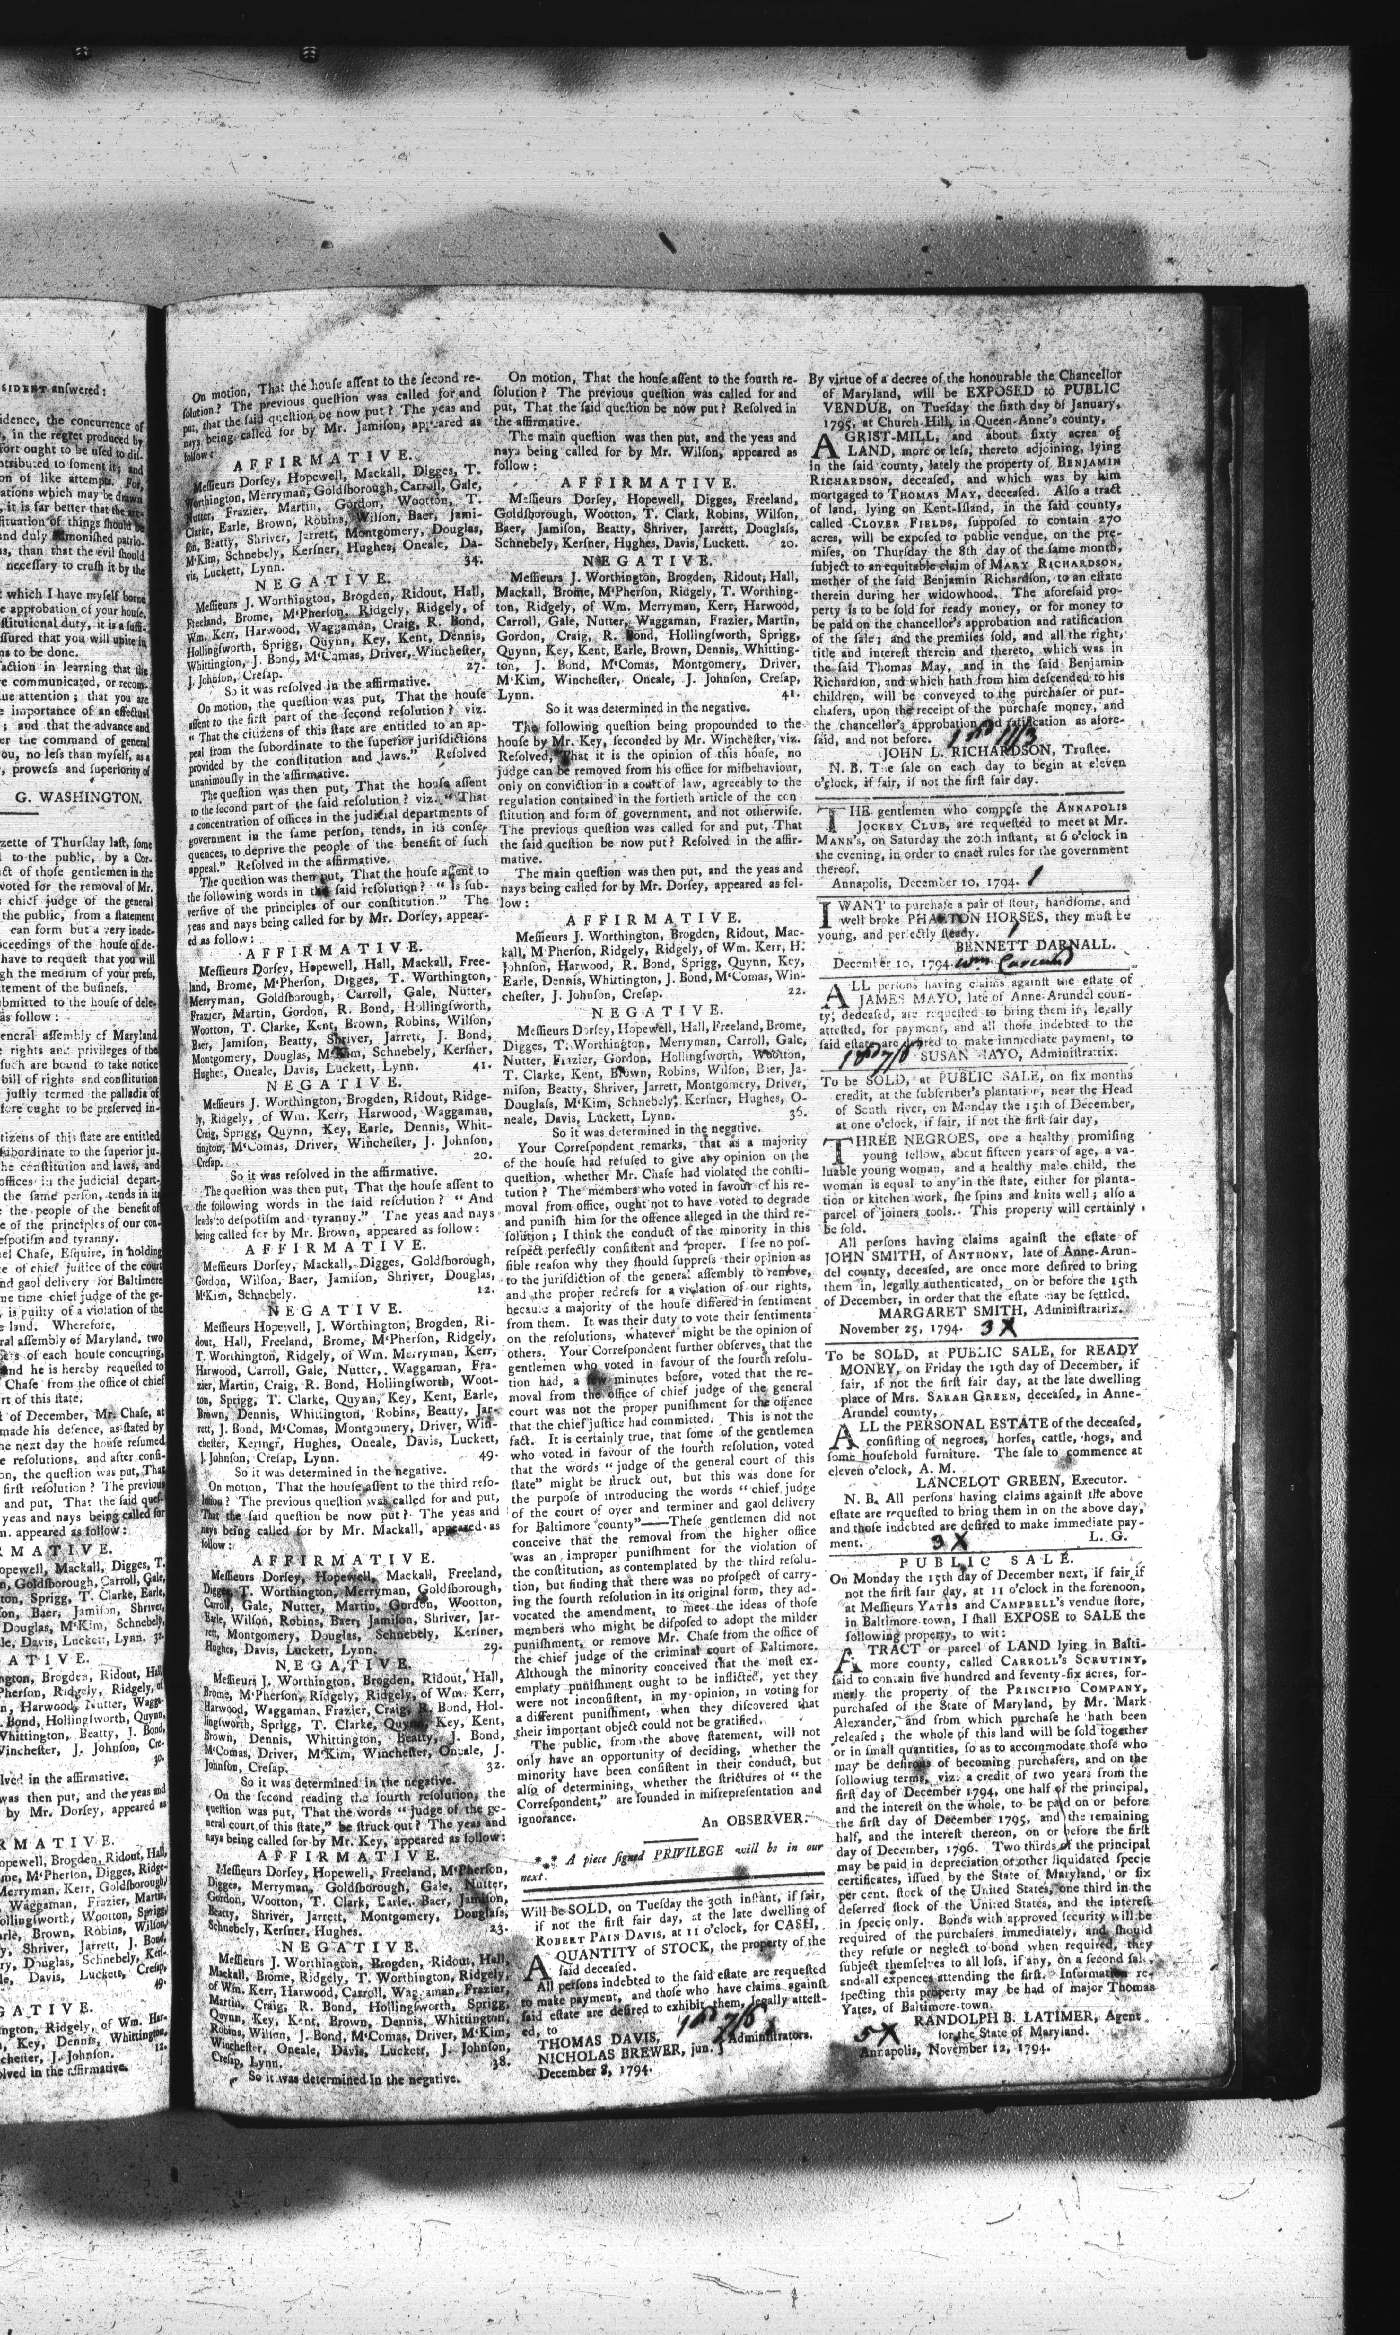 SIDENT answered:
idence, the concurrence of
, in the regret produced by
fort ought to be used to dis-
ntributed to foment it; and
on of like attempts. For,
ations which may be drawn
, it is far better that the
situation of things should be
and duly admonished patrio-
s, than that the evil should
necessary to crush it by the
t which I have myself borne
e approbation of your house,
stitutional duty, it is a suffi-
ssured that you will unite in
ns to be done.
faction in learning that the
re communicated, or recom-
ue attention; that you are
e importance of an effectual
; and that the advance and
er the command of general
ou, no less than myself, as a
, prowess and superiority of
G. WASHINGTON.
zette of Thursday last, some
to the public, by a Cor-
ct of those gentlemen in the
voted for the removal of Mr.
chief judge of the general
the public, from a statement
can form but a very inade-
ceedings of the house of de-
have to request that you will
gh the medium of your press,
tement of the business.
ubmitted to the house of dele-
as follow:
eneral assembly of Maryland
e rights and privileges of the
such are bound to take notice
bill of rights and constitution
justly termed the palladia of
fore ought to be preserved in-
tizens of this state are entitled
subordinate to the superior ju-
the constitution and laws, and
offices in the judicial depart-
the same person, tends in its
the people of the benefit of
e of the principles of our con-
espotism and tyranny.
el Chase, Esquire, in holding
e of chief justice of the court
nd gaol delivery for Baltimore
me time chief judge of the ge-
is guilty of a violation of the
e land. Wherefore,
ral assembly of Maryland, two
ers of each house concurring,
and he is hereby requested to
Chase from the office of chief
rt of this state.
t of December, Mr. Chase, at
made his defence, as stated by
he next day the house resumed
e resolutions, and after consi-
on, the question was put, That
first resolution? The previous
and put, That the said ques-
yeas and nays being called for
n. appeared as follow:
RMATIVE.
opewell, Mackall, Digges, T.
n, Goldsborough, Carroll, Gale,
ton, Sprigg, T. Clarke, Earle,
on, Baer, Jamison, Shriver,
Douglas, M'Kim, Schnebely,
le, Davis, Luckett, Lynn. 32.
ATIVE.
ngton, Brogden, Ridout, Hall,
Pherson, Ridgely, Ridgely, of
n, Harwood, Nutter, Wagga-
Bond, Hollingsworth, Quynn,
Whittington, Beatty, J. Bond,
Winchester, J. Johnson, Cre-
30.
lved in the affirmative.
was then put, and the yeas and
by Mr. Dorsey, appeared as
RMATIVE.
opewell, Brogden, Ridout, Hall,
me, M'Pherson, Digges, Ridge-
Merryman, Kerr, Goldsborough,
Waggaman, Frazier, Martin,
ollingsworth, Wootton, Sprigg,
arle, Brown, Robins, Wilson,
y, Shriver, Jarrett, J. Bond,
ry, Douglas, Schnebely, Kers-
le, Davis, Luckett, Cresap,
49.
GATIVE.
ngton, Ridgely, of Wm. Har-
n, Key, Dennis, Whittington,
chester, J. Johnson. 12.
olved in the affirmative.
On motion, That the house assent to the second re-
solution? The previous question was called for and
put, that the said question be now put? The yeas and
nays being called for by Mr. Jamison, appeared as
follow:
AFFIRMATIVE.
Messieurs Dorsey, Hopewell, Mackall, Digges, T.
Worthington, Merryman, Goldsborough, Carroll, Gale,
Nutter, Frazier, Martin, Gordon, Wootton, T.
Clarke, Earle, Brown, Robins, Wilson, Baer, Jami-
son, Beatty, Shriver, Jarrett, Montgomery, Douglas,
M'Kim, Schnebely, Kersner, Hughes, Oneale, Da-
vis, Luckett, Lynn. 34.
NEGATIVE.
Messieurs J. Worthington, Brogden, Ridout, Hall,
Freeland, Brome, M'Pherson, Ridgely, Ridgely, of
Wm. Kerr, Harwood, Waggaman, Craig, R. Bond,
Hollingsworth, Sprigg, Quynn, Key, Kent, Dennis,
Whittington, J. Bond, M'Comas, Driver, Winchester,
J. Johnson, Cresap. 27.
So it was resolved in the affirmative.
On motion, the question was put, That the house
assent to the first part of the second resolution? viz.
"That the citizens of this state are entitled to an ap-
peal from the subordinate to the superior jurisdictions
provided by the constitution and laws." Resolved
unanimously in the affirmative.
The question was then put, That the house assent
to the second part of the said resolution? viz. "That
a concentration of offices in the judicial departments of
government in the same person, tends, in its conse-
quences, to deprive the people of the benefit of such
appeal." Resolved in the affirmative.
The question was then put, That the house assent to
the following words in the said resolution? "Is sub-
versive of the principles of our constitution." The
yeas and nays being called for by Mr. Dorsey, appear-
ed as follow:
AFFIRMATIVE.
Messieurs Dorsey, Hopewell, Hall, Mackall, Free-
land, Brome, M'Pherson, Digges, T. Worthington,
Merryman, Goldsborough, Carroll, Gale, Nutter,
Frazier, Martin, Gordon, R. Bond, Hollingsworth,
Wootton, T. Clarke, Kent, Brown, Robins, Wilson,
Baer, Jamison, Beatty, Shriver, Jarrett, J. Bond,
Montgomery, Douglas, M'Kim, Schnebely, Kersner,
Hughes, Oneale, Davis, Luckett, Lynn. 41.
NEGATIVE.
Messieurs J. Worthington, Brogden, Ridout, Ridge-
ly, Ridgely, of Wm. Kerr, Harwood, Waggaman,
Craig, Sprigg, Quynn, Key, Earle, Dennis, Whit-
tington, M'Comas, Driver, Winchester, J. Johnson,
Cresap. 20.
So it was resolved in the affirmative.
The question was then put, That the house assent to
the following words in the said resolution? "And
leads to despotism and tyranny." The yeas and nays
being called for by Mr. Brown, appeared as follow:
AFFIRMATIVE.
Messieurs Dorsey, Mackall, Digges, Goldsborough,
Gordon, Wilson, Baer, Jamison, Shriver, Douglas,
M'Kim, Schnebely. 12.
NEGATIVE.
Messieurs Hopewell, J. Worthington, Brogden, Ri-
dout, Hall, Freeland, Brome, M'Pherson, Ridgely,
T. Worthington, Ridgely, of Wm. Merryman, Kerr,
Harwood, Carroll, Gale, Nutter, Waggaman, Fra-
zier, Martin, Craig, R. Bond, Hollingsworth, Woot-
ton, Sprigg, T. Clarke, Quynn, Key, Kent, Earle,
Brown, Dennis, Whittington, Robins, Beatty, Jar-
rett, J. Bond, M'Comas, Montgomery, Driver, Win-
chester, Kersner, Hughes, Oneale, Davis, Luckett,
J. Johnson, Cresap, Lynn. 49.
So it was determined in the negative.
On motion, That the house assent to the third reso-
lution? The previous question was called for and put,
That the said question be now put? The yeas and
nays being called for by Mr. Mackall, appeared as
follow:
AFFIRMATIVE.
Messieurs Dorsey, Hopewell, Mackall, Freeland,
Digges, T. Worthington, Merryman, Goldsborough,
Carroll, Gale, Nutter, Martin, Gordon, Wootton,
Earle, Wilson, Robins, Baer, Jamison, Shriver, Jar-
rett, Montgomery, Douglas, Schnebely, Kersner,
Hughes, Davis, Luckett, Lynn. 29.
NEGATIVE.
Messieurs J. Worthington, Brogden, Ridout, Hall,
Brome, M'Pherson, Ridgely, Ridgely, of Wm. Kerr,
Harwood, Waggaman, Frazier, Craig, R. Bond, Hol-
lingsworth, Sprigg, T. Clarke, Quynn, Key, Kent,
Brown, Dennis, Whittington, Beatty, J. Bond,
M'Comas, Driver, M'Kim, Winchester, Oneale, J.
Johnson, Cresap. 32.
So it was determined in the negative.
On the second reading the fourth resolution, the
question was put, That the words "judge of the ge-
neral court of this state," be struck out? The yeas and
nays being called for by Mr. Key, appeared as follow:
AFFIRMATIVE.
Messieurs Dorsey, Hopewell, Freeland, M'Pherson,
Digges, Merryman, Goldsborough, Gale, Nutter,
Gordon, Wootton, T. Clark, Earle, Baer, Jamison,
Beatty, Shriver, Jarrett, Montgomery, Douglass,
Schnebely, Kersner, Hughes. 23.
NEGATIVE.
Messieurs J. Worthington, Brogden, Ridout, Hall,
Mackall, Brome, Ridgely, T. Worthington, Ridgely,
of Wm. Kerr, Harwood, Carroll, Waggaman, Frazier,
Martin, Craig, R. Bond, Hollingsworth, Sprigg,
Quynn, Key, Kent, Brown, Dennis, Whittington,
Robins, Wilson, J. Bond, M'Comas, Driver, M'Kim,
Winchester, Oneale, Davis, Luckett, J. Johnson,
Cresap, Lynn. 38.
So it was determined in the negative.
On motion, That the house assent to the fourth re-
solution? The previous question was called for and
put, That the said question be now put? Resolved in
the affirmative.
The main question was then put, and the yeas and
nays being called for by Mr. Wilson, appeared as
follow:
AFFIRMATIVE.
Messieurs Dorsey, Hopewell, Digges, Freeland,
Goldsborough, Wootton, T. Clark, Robins, Wilson,
Baer, Jamison, Beatty, Shriver, Jarrett, Douglass,
Schnebely, Kersner, Hughes, Davis, Luckett. 20.
NEGATIVE.
Messieurs J. Worthington, Brogden, Ridout, Hall,
Mackall, Brome, M'Pherson, Ridgely, T. Worthing-
ton, Ridgely, of Wm. Merryman, Kerr, Harwood,
Carroll, Gale, Nutter, Waggaman, Frazier, Martin,
Gordon, Craig, R. Bond, Hollingsworth, Sprigg,
Quynn, Key, Kent, Earle, Brown, Dennis, Whitting-
ton, J. Bond, M'Comas, Montgomery, Driver,
M'Kim, Winchester, Oneale, J. Johnson, Cresap,
Lynn. 41.
So it was determined in the negative.
The following question being propounded to the
house by Mr. Key, seconded by Mr. Winchester, viz.
Resolved, That it is the opinion of this house, no
judge can be removed from his office for misbehaviour,
only on conviction in a court of law, agreeably to the
regulation contained in the fortieth article of the con
stitution and form of government, and not otherwise.
The previous question was called for and put, That
the said question be now put? Resolved in the affir-
mative.
The main question was then put, and the yeas and
nays being called for by Mr. Dorsey, appeared as fol-
low:
AFFIRMATIVE.
Messieurs J. Worthington, Brogden, Ridout, Mac-
kall, M'Pherson, Ridgely, Ridgely, of Wm. Kerr, H.
Johnson, Harwood, R. Bond, Sprigg, Quynn, Key,
Earle, Dennis, Whittington, J. Bond, M'Comas, Win-
chester, J. Johnson, Cresap. 22.
NEGATIVE.
Messieurs Dorsey, Hopewell, Hall, Freeland, Brome,
Digges, T. Worthington, Merryman, Carroll, Gale,
Nutter, Frazier, Gordon, Hollingsworth, Wootton,
T. Clarke, Kent, Brown, Robins, Wilson, Baer, Ja-
mison, Beatty, Shriver, Jarrett, Montgomery, Driver,
Douglass, M'Kim, Schnebely, Kersner, Hughes, O-
neale, Davis, Luckett, Lynn. 36.
So it was determined in the negative.
Your Correspondent remarks, that as a majority
of the house had refused to give any opinion on the
question, whether Mr. Chase had violated the consti-
tution? The members who voted in favour of his re-
moval from office, ought not to have voted to degrade
and punish him for the offence alleged in the third re-
solution; I think the conduct of the minority in this
respect perfectly consistent and proper. I see no pos-
sible reason why they should suppress their opinion as
to the jurisdiction of the general assembly to remove,
and the proper redress for a violation of our rights,
because a majority of the house differed in sentiment
from them. It was their duty to vote their sentiments
on the resolutions, whatever might be the opinion of
others. Your Correspondent further observes, that the
gentlemen who voted in favour of the fourth resolu-
tion had, a few minutes before, voted that the re-
moval from the office of chief judge of the general
court was not the proper punishment for the offence
that the chief justice had committed. This is not the
fact. It is certainly true, that some of the gentlemen
who voted in favour of the fourth resolution, voted
that the words "judge of the general court of this
state" might be struck out, but this was done for
the purpose of introducing the words "chief judge
of the court of oyer and terminer and gaol delivery
for Baltimore county"—These gentlemen did not
conceive that the removal from the higher office
was an improper punishment for the violation of
the constitution, as contemplated by the third resolu-
tion, but finding that there was no prospect of carry-
ing the fourth resolution in its original form, they ad-
vocated the amendment, to meet the ideas of those
members who might be disposed to adopt the milder
punishment, or remove Mr. Chase from the office of
the chief judge of the criminal court of Baltimore.
Although the minority conceived that the most ex-
emplary punishment ought to be inflicted, yet they
were not inconsistent, in my opinion, in voting for
a different punishment, when they discovered that
their important object could not be gratified.
The public, from the above statement, will not
only have an opportunity of deciding, whether the
minority have been consistent in their conduct, but
also of determining, whether the strictures of "the
Correspondent," are founded in misrepresentation and
ignorance.
An OBSERVER.
*** A piece signed PRIVILEGE will be in our
next.
Will be SOLD, on Tuesday the 30th instant, if fair,
if not the first fair day, at the late dwelling of
ROBERT PAIN DAVIS, at 11 o'clock, for CASH,
A QUANTITY of STOCK, the property of the
said deceased.
All persons indebted to the said estate are requested
to make payment, and those who have claims against
said estate are desired to exhibit them, legally attest-
ed, to
THOMAS DAVIS,
NICHOLAS BREWER, jun. } Administrators.
December 8, 1794.
By virtue of a decree of the honourable the Chancellor
of Maryland, will be EXPOSED to PUBLIC
VENDUE, on Tuesday the sixth day of January,
1795, at Church-Hill, in Queen-Anne's county,
A GRIST-MILL, and about sixty acres of
LAND, more or less, thereto adjoining, lying
in the said county, lately the property of BENJAMIN
RICHARDSON, deceased, and which was by him
mortgaged to THOMAS MAY, deceased. Also a tract
of land, lying on Kent-Island, in the said county,
called CLOVER FIELDS, supposed to contain 270
acres, will be exposed to public vendue, on the pre-
mises, on Thursday the 8th day of the same month,
subject to an equitable claim of MARY RICHARDSON,
mother of the said Benjamin Richardson, to an estate
therein during her widowhood. The aforesaid pro-
perty is to be sold for ready money, or for money to
be paid on the chancellor's approbation and ratification
of the sale; and the premises sold, and all the right,
title and interest therein and thereto, which was in
the said Thomas May, and in the said Benjamin
Richardson, and which hath from him descended to his
children, will be conveyed to the purchaser or pur-
chasers, upon the receipt of the purchase money, and
the chancellor's approbation and ratification as afore-
said, and not before.
JOHN L. RICHARDSON, Trustee.
N. B. The sale on each day to begin at eleven
o'clock, if fair, if not the first fair day.
THE gentlemen who compose the ANNAPOLIS
JOCKEY CLUB, are requested to meet at Mr.
MANN's, on Saturday the 20th instant, at 6 o'clock in
the evening, in order to enact rules for the government
thereof.
Annapolis, December 10, 1794. 1
I WANT to purchase a pair of stout, handsome, and
well broke PHAETON HORSES, they must be
young, and perfectly steady. 1
BENNETT DARNALL.
December 10, 1794.
ALL persons having claims against the estate of
JAMES MAYO, late of Anne-Arundel coun-
ty, deceased, are requested to bring them in, legally
attested, for payment, and all those indebted to the
said estate are desired to make immediate payment, to
SUSAN MAYO, Administratrix.
To be SOLD, at PUBLIC SALE, on six months
credit, at the subscriber's plantation, near the Head
of South river, on Monday the 15th of December,
at one o'clock, if fair, if not the first fair day,
THREE NEGROES, one a healthy promising
young fellow, about fifteen years of age, a va-
luable young woman, and a healthy male child, the
woman is equal to any in the state, either for planta-
tion or kitchen work, she spins and knits well; also a
parcel of joiners tools. This property will certainly
be sold.
All persons having claims against the estate of
JOHN SMITH, of ANTHONY, late of Anne-Arun-
del county, deceased, are once more desired to bring
them in, legally authenticated, on or before the 15th
of December, in order that the estate may be settled.
MARGARET SMITH, Administratrix.
November 25, 1794. 3 X
To be SOLD, at PUBLIC SALE, for READY
MONEY, on Friday the 19th day of December, if
fair, if not the first fair day, at the late dwelling
place of Mrs. SARAH GREEN, deceased, in Anne-
Arundel county,
ALL the PERSONAL ESTATE of the deceased,
consisting of negroes, horses, cattle, hogs, and
some household furniture. The sale to commence at
eleven o'clock, A. M.
LANCELOT GREEN, Executor.
N. B. All persons having claims against the above
estate are requested to bring them in on the above day,
and those indebted are desired to make immediate pay-
ment. 3 X L. G.
PUBLIC SALE.
On Monday the 15th day of December next, if fair if
not the first fair day, at 11 o'clock in the forenoon,
at Messieurs YATES and CAMPBELL's vendue store,
in Baltimore-town, I shall EXPOSE to SALE the
following property, to wit:
A TRACT or parcel of LAND lying in Balti-
more county, called CARROLL's SCRUTINY,
said to contain five hundred and seventy-six acres, for-
merly the property of the PRINCIPIO COMPANY,
purchased of the State of Maryland, by Mr. Mark
Alexander, and from which purchase he hath been
released; the whole of this land will be sold together
or in small quantities, so as to accommodate those who
may be desirous of becoming purchasers, and on the
following terms, viz. a credit of two years from the
first day of December 1794, one half of the principal,
and the interest on the whole, to be paid on or before
the first day of December 1795, and the remaining
half, and the interest thereon, on or before the first
day of December, 1796. Two thirds of the principal
may be paid in depreciation or other liquidated specie
certificates, issued by the State of Maryland, or six
per cent. stock of the United States, one third in the
deferred stock of the United States, and the interest
in specie only. Bonds with approved security will be
required of the purchasers immediately, and should
they refuse or neglect to bond when required, they
subject themselves to all loss, if any, on a second sale,
and all expences attending the first. Information re-
specting this property may be had of major Thomas
Yates, of Baltimore-town.
RANDOLPH B. LATIMER, Agent
5X for the State of Maryland.
Annapolis, November 12, 1794.